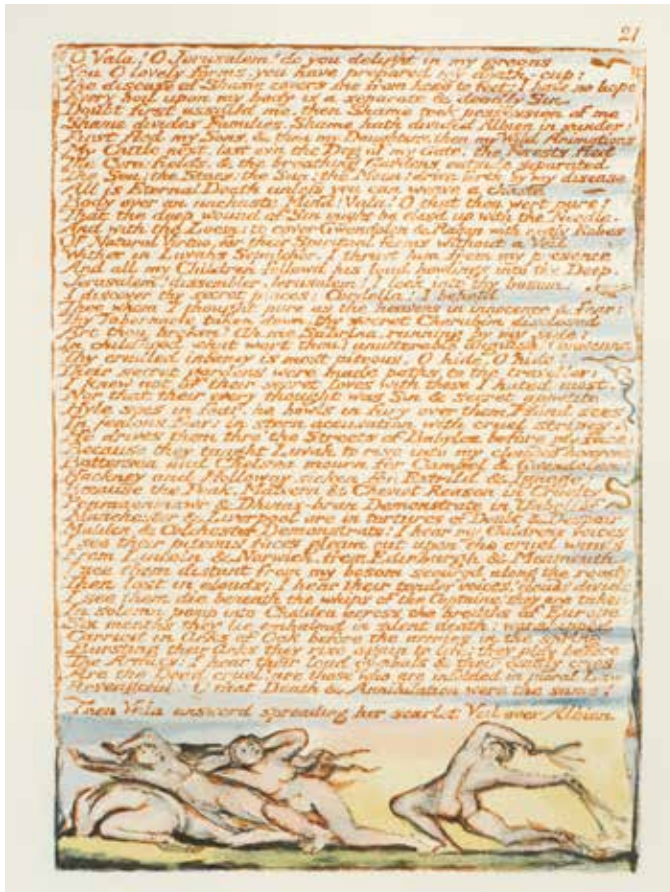 21
O Vala! O Jerusalem! do you delight in my groans
You O lovely forms, you have prepared my death-cup:
The disease of Shame covers me from head to feet: I have no hope
Every boil upon my body is a separate & deadly Sin.
Doubt first assaild me, then Shame took possession of me
Shame divides Families. Shame hath divided Albion in sunder!
First fled my Sons, & then my Daughters, then my Wild Animations
My Cattle next, last ev'n the Dog of my Gate. the Forests fled
The Corn-fields, & the breathing Gardens outside separated
The Sea; the Stars: the Sun: the Moon: drivn forth by my disease
All is Eternal Death unless you can weave a chaste
Body over an unchaste Mind! Vala! O that thou wert pure!
That the deep wound of Sin might be clos'd up with the Needle,
And with the Loom: to cover Gwendolen & Ragan with costly Robes
Of Natural Virtue, for their Spiritual forms without a Veil
Wither in Luvahs Sepulcher. I thrust him from my presence
And all my Children followd his loud howlings into the Deep.
Jerusalem! dissembler Jerusalem! I look into thy bosom:
I discover thy secret places: Cordella! I behold
Thee whom I thought pure as the heavens in innocence & fear:
Thy Tabernacle taken down, thy secret Cherubim disclosed
Art thou broken? Ah me Sabrina, running by my side:
In childhood what wert thou? unutterable anguish! Conwenna
Thy cradled infancy is most piteous. O hide, O hide!
Their secret gardens were made paths to the traveller:
I knew not of their secret loves with those I hated most,
Nor that their every thought was Sin & secret appetite
Hyle sees in fear, he howls in fury over them, Hand sees
In jealous fear: in stern accusation with cruel stripes
He drives them thro' the Streets of Babylon before my face:
Because they taught Luvah to rise into my clouded heavens
Battersea and Chelsea mourn for Cambel & Gwendolen!
Hackney and Holloway sicken for Estrild & Ignoge!
Because the Peak, Malvern & Cheviot Reason in Cruelty
Penmaenmawr & Dhinas-bran Demonstrate in Unbelief
Manchester & Liverpool are in tortures of Doubt & Despair
Malden & Colchester Demonstrate: I hear my Childrens voices
I see their piteous faces gleam out upon the cruel winds
From Lincoln & Norwich, from Edinburgh & Monmouth:
I see them distant from my bosom scourgd along the roads
Then lost in clouds; I hear their tender voices! clouds divide
I see them die beneath the whips of the Captains! they are taken
In solemn pomp into Chaldea across the bredths of Europe
Six months they lie embalmd in silent death: warshipped
Carried in Arks of Oak before the armies in the spring
Bursting their Arks they rise again to life: they play before
The Armies: I hear their loud cymbals & their deadly cries
Are the Dead cruel? are those who are infolded in moral Law
Revengeful? O that Death & Annihilation were the same!
Then Vala answerd spreading her scarlet Veil over Albion